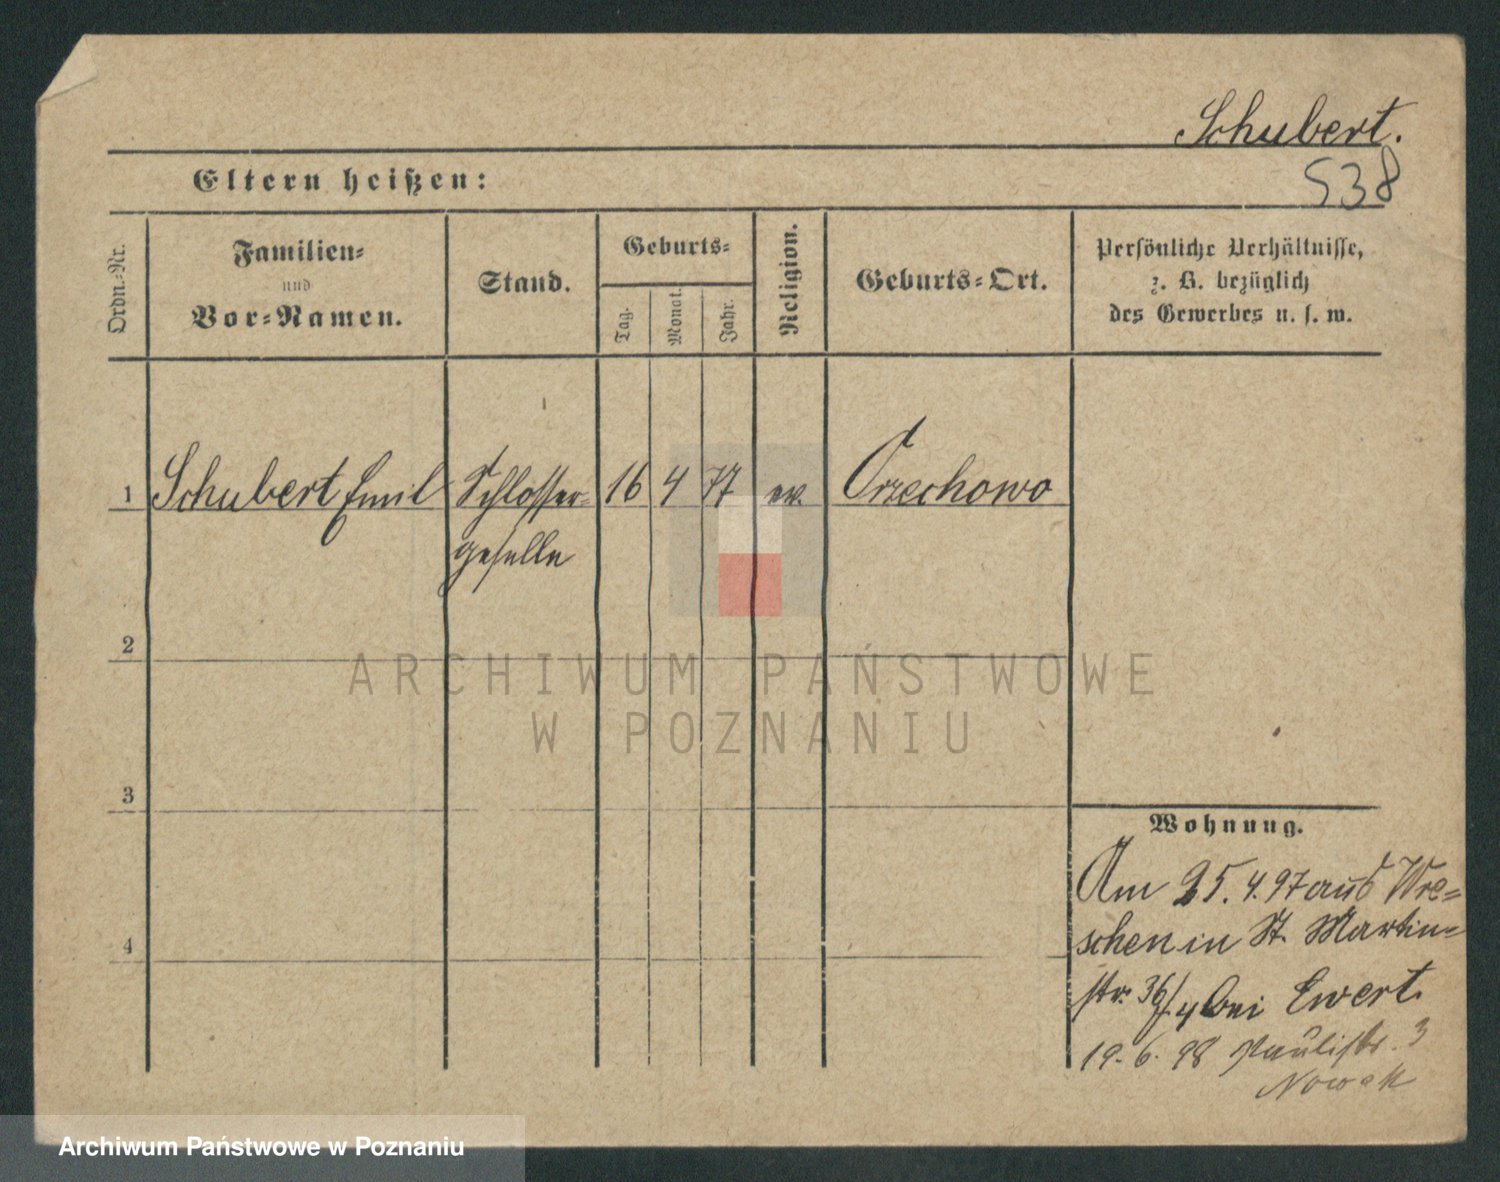 Schubert.
538
Eltern heißen:
Ordn.-Nr.
Familien-
und
Vor-Namen.
Stand.
Geburts-
Tag.
Monat.
Jahr.
Religion.
Geburts-Ort.
Persönliche Verhältnisse,
z. B. bezüglich
des Gewerbes u. s. w.
1 Schubert Emil Schlosser- 16 4 77 ev. Orzechowo
geselle
2
ARCHIWUM PAŃSTWOWE
W POZNANIU
3
Wohnung.
Am 25. 4. 97 aus Wre-
schen in St. Martin-
str. 36/4 bei Ewert.
4
19. 6. 98 Paulistr. 3
Nowak
Archiwum Państwowe w Poznaniu